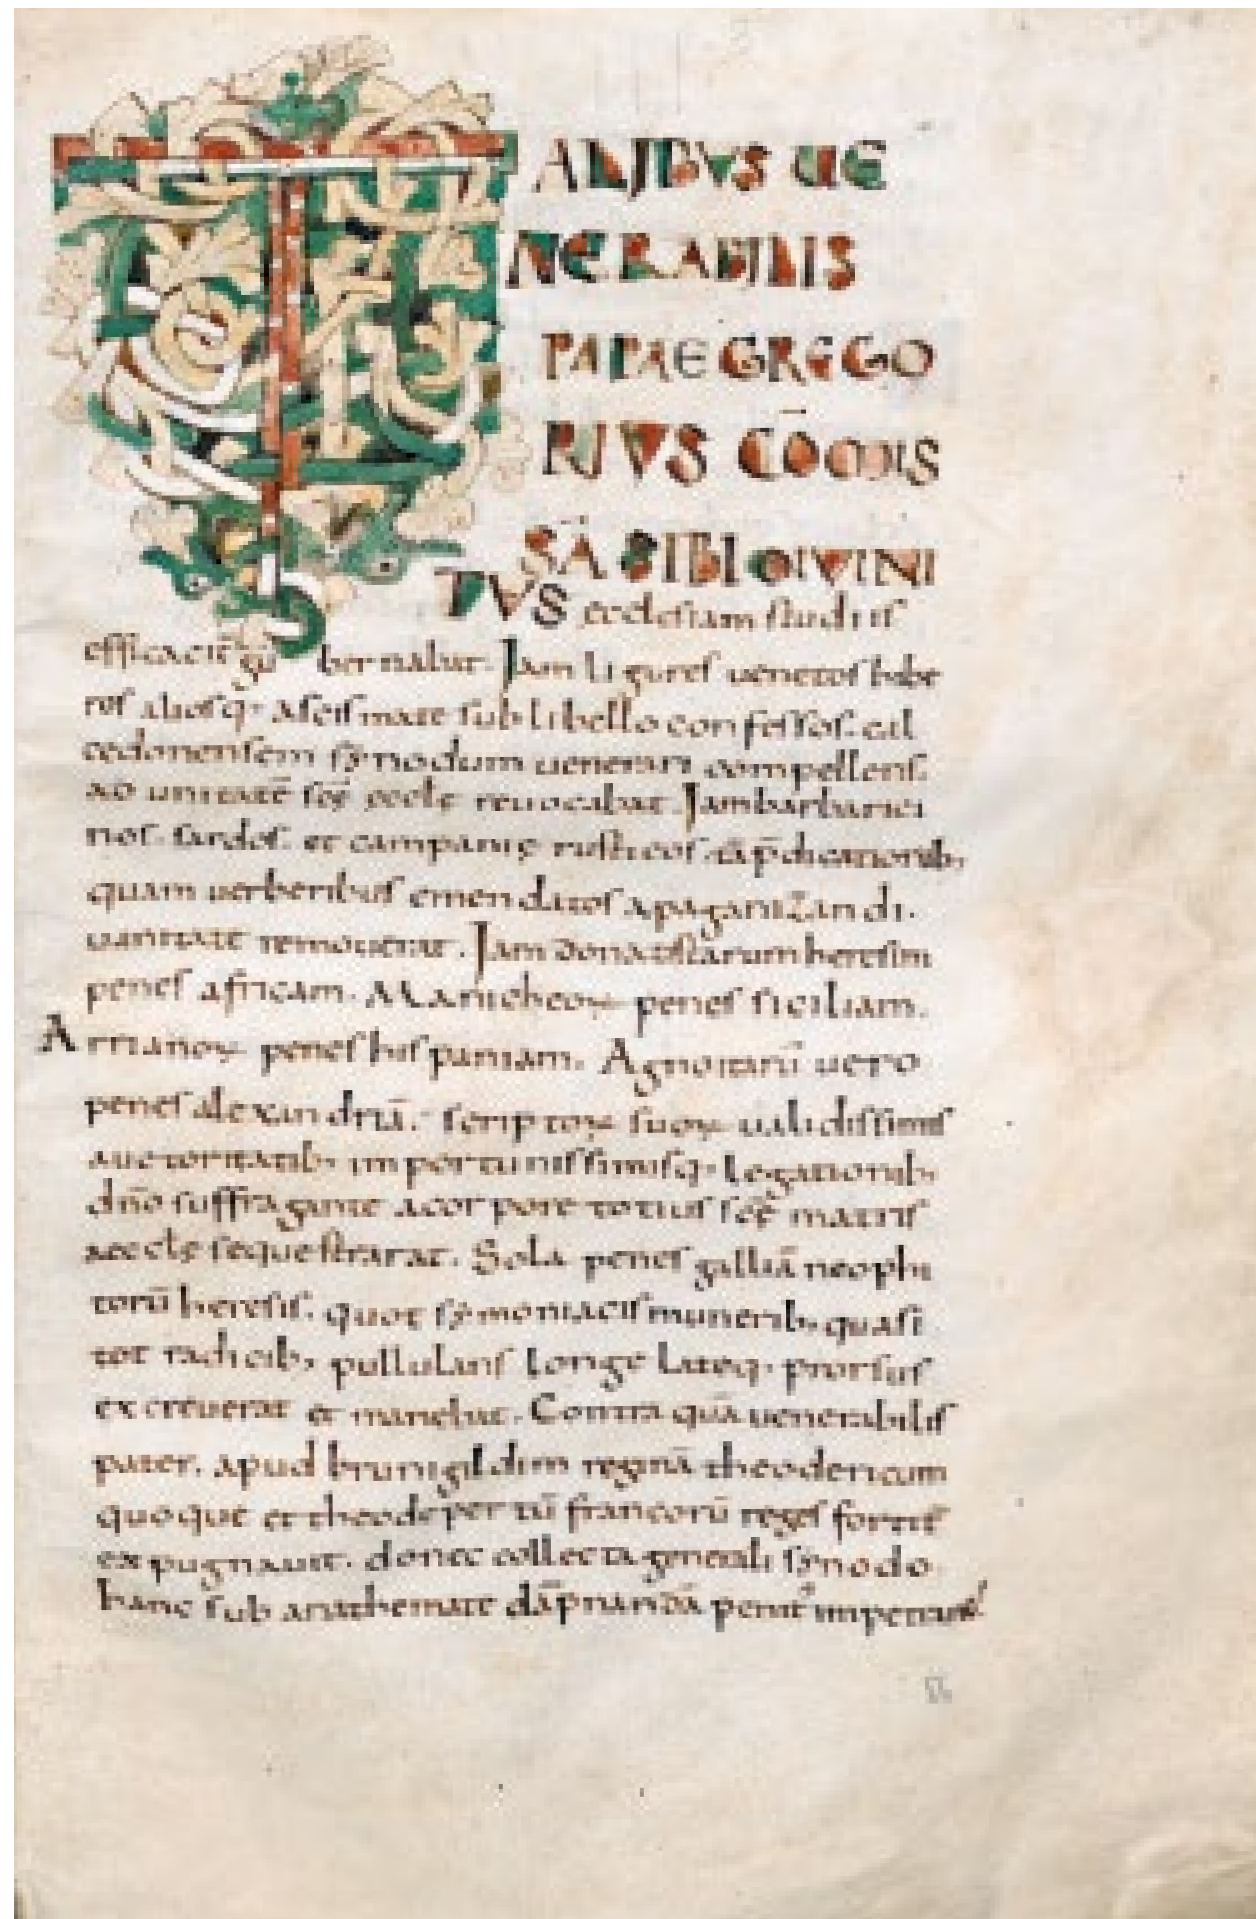 TALIBVS UE
NERABILIS
PAPAE GREGO
RIVS CŌMIS
SĀ SIBI DIVINI
TVS ecclesiam studiis
efficacit̄ gu bernabat. Jam Ligures uenetos hibe
ros aliosq; a scismate sub libello confessos. cal
cedonensem synodum uenerari compellens.
ad unitatē scę̄ ecclę reuocabat. Jam barbarici
nos. sardos. et campanię rusticos tā p̄dicationib;
quam uerberibus emendatos a paganizandi.
uanitate remouerat. Jam donatistarum heresim
penes africam. Manicheoꝝ penes siciliam.
Arrianoꝝ penes hispaniam. Agnoitarū uero
penes alexandriā. scriptoꝝ suoꝝ ualidissimis
auctoritatib; importunissimisq; legationib;
dn̄o suffragante a corpore totius scę̄ matris
aecclę sequestrarat. Sola penes galliā neophi
torū heresis. quot symoniacis munerib; quasi
tot radicib; pullulans longe lateq; prorsus
excreuerat et manebat. Contra quā uenerabilis
pater. apud brunigildim reginā theodericum
quoque et theodepertū francorū reges fortit̄
expugnauit. donec collecta generali synodo
hanc sub anathemate dāpnandā penit᷒ impetraret